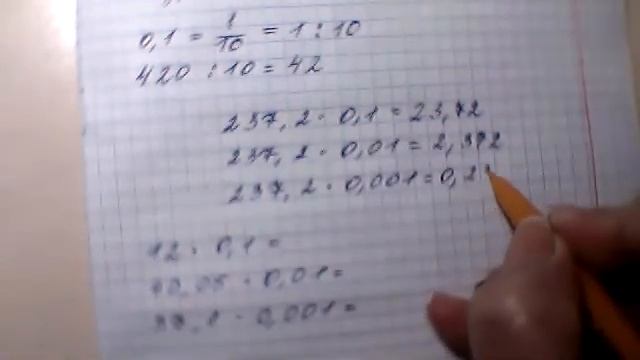 0,1 = 1/10 = 1 : 10
420 : 10 = 42
237,2 · 0,1 = 23,72
237,2 · 0,01 = 2,372
237,2 · 0,001 = 0,23
12 · 0,1 =
· 0,01 =
· 0,001 =